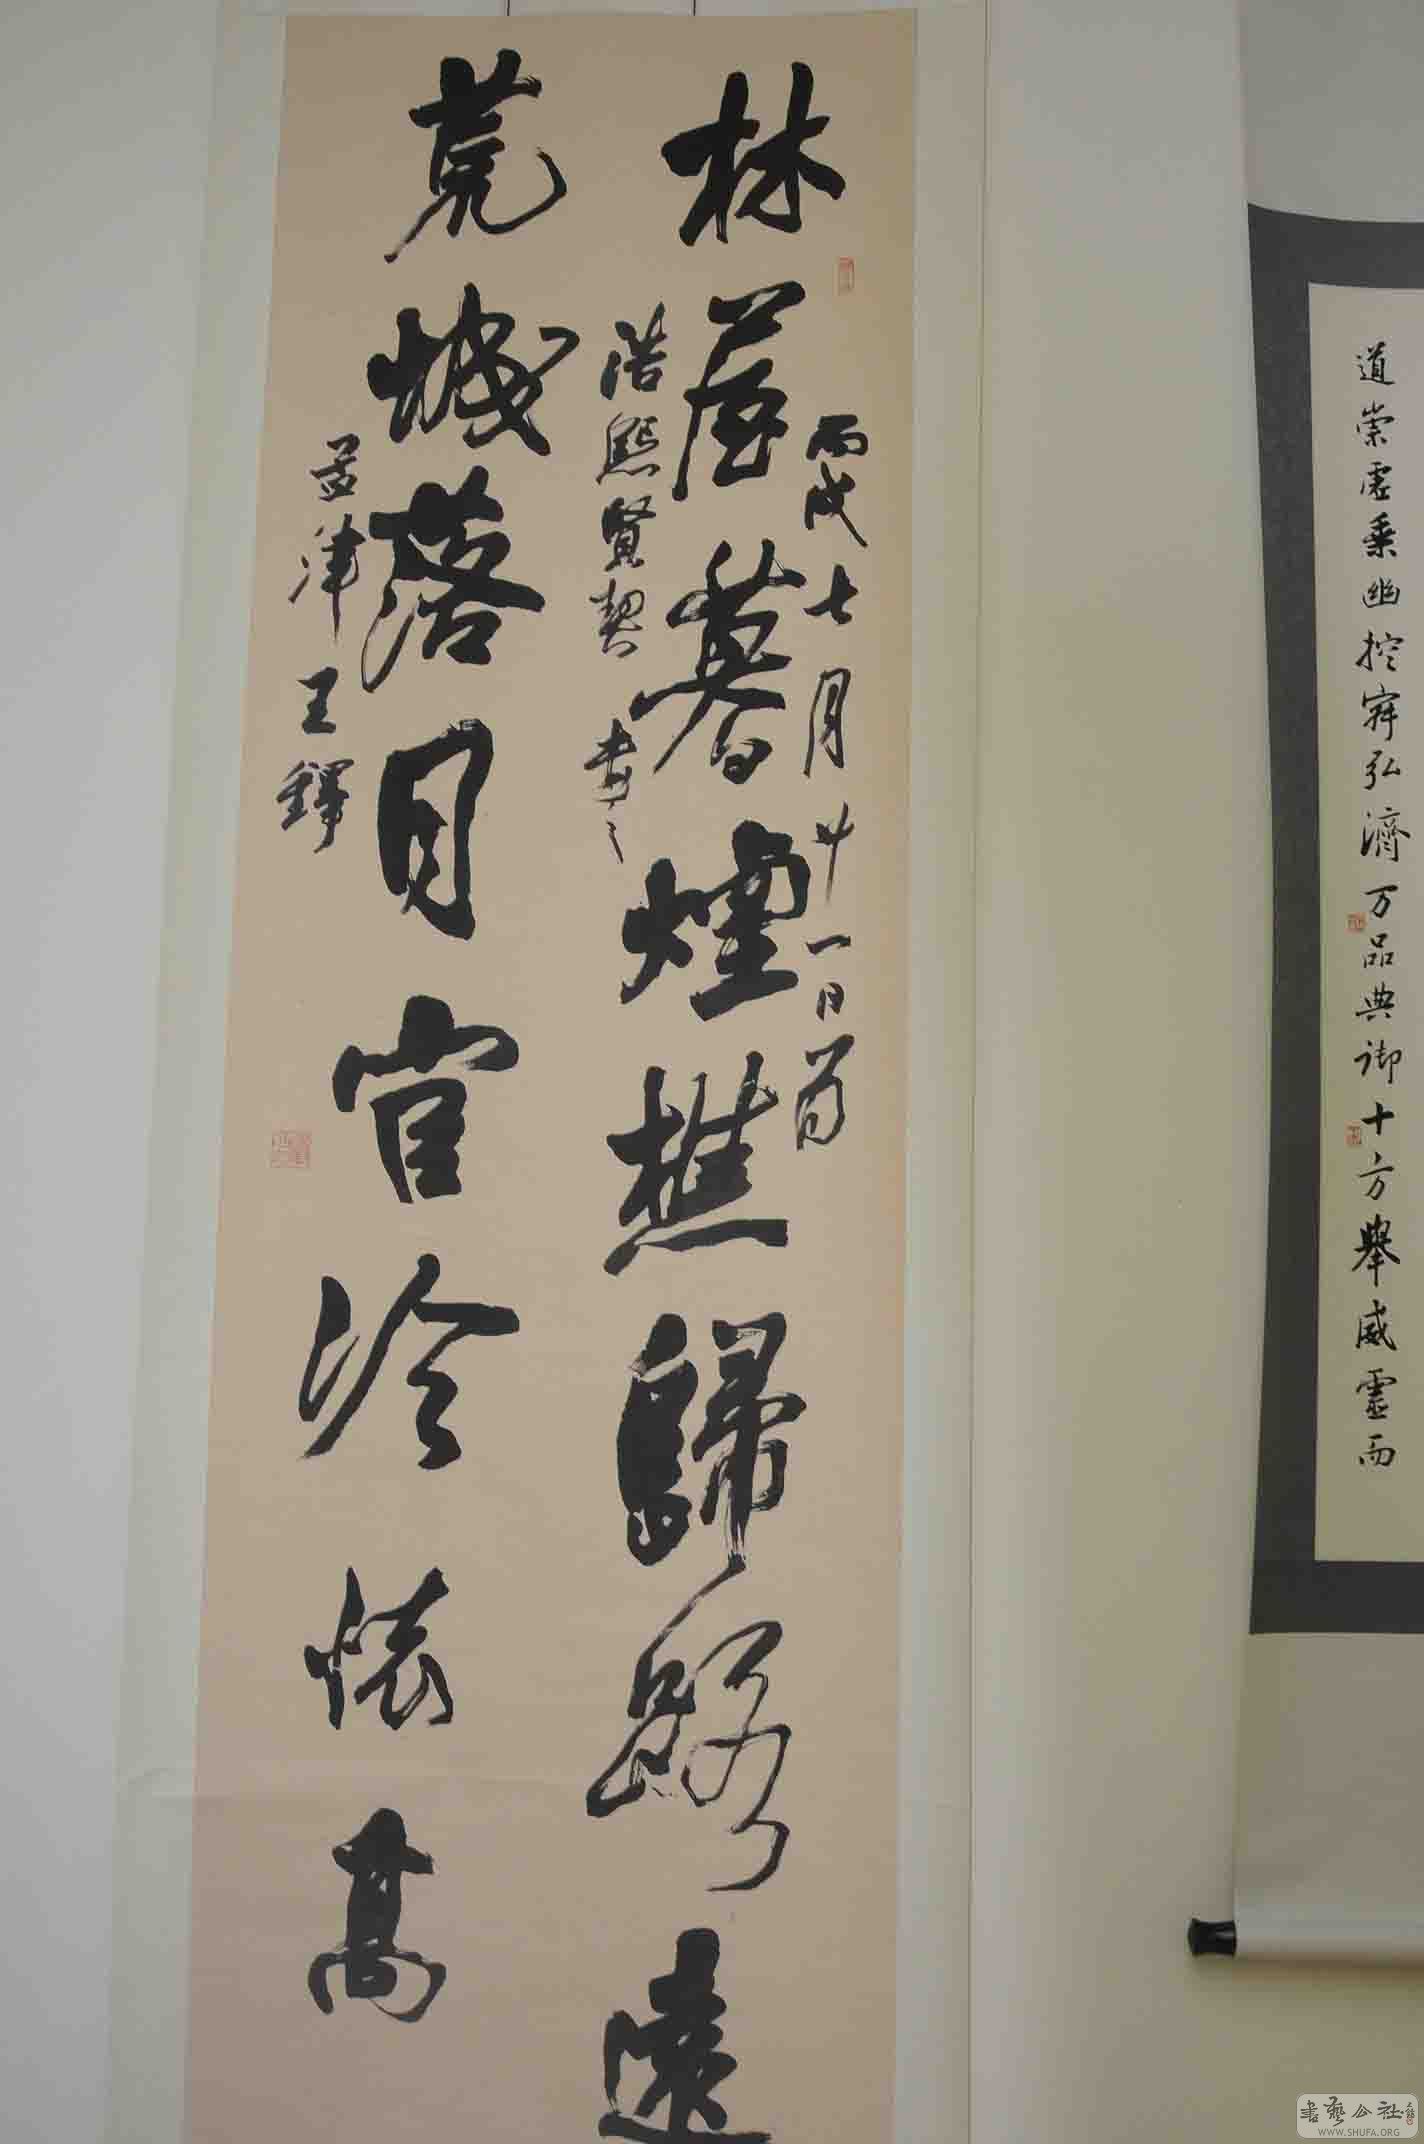 道崇虛乘幽控寂弘濟万品典御十方舉威靈而
丙戌七月廿一日為
林屋暮煙樵歸路遠
賢契書之
荒城落日官冷懷高
孟津王鐸
書藝公社
WWW.SHUFA.ORG